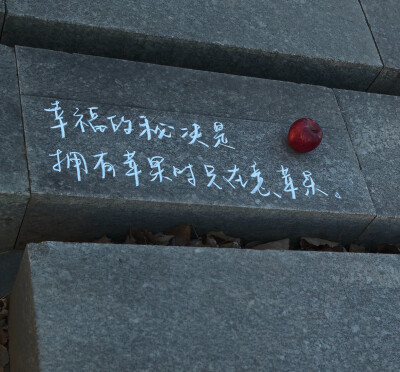 幸福的秘决是
拥有苹果时只在意苹果。